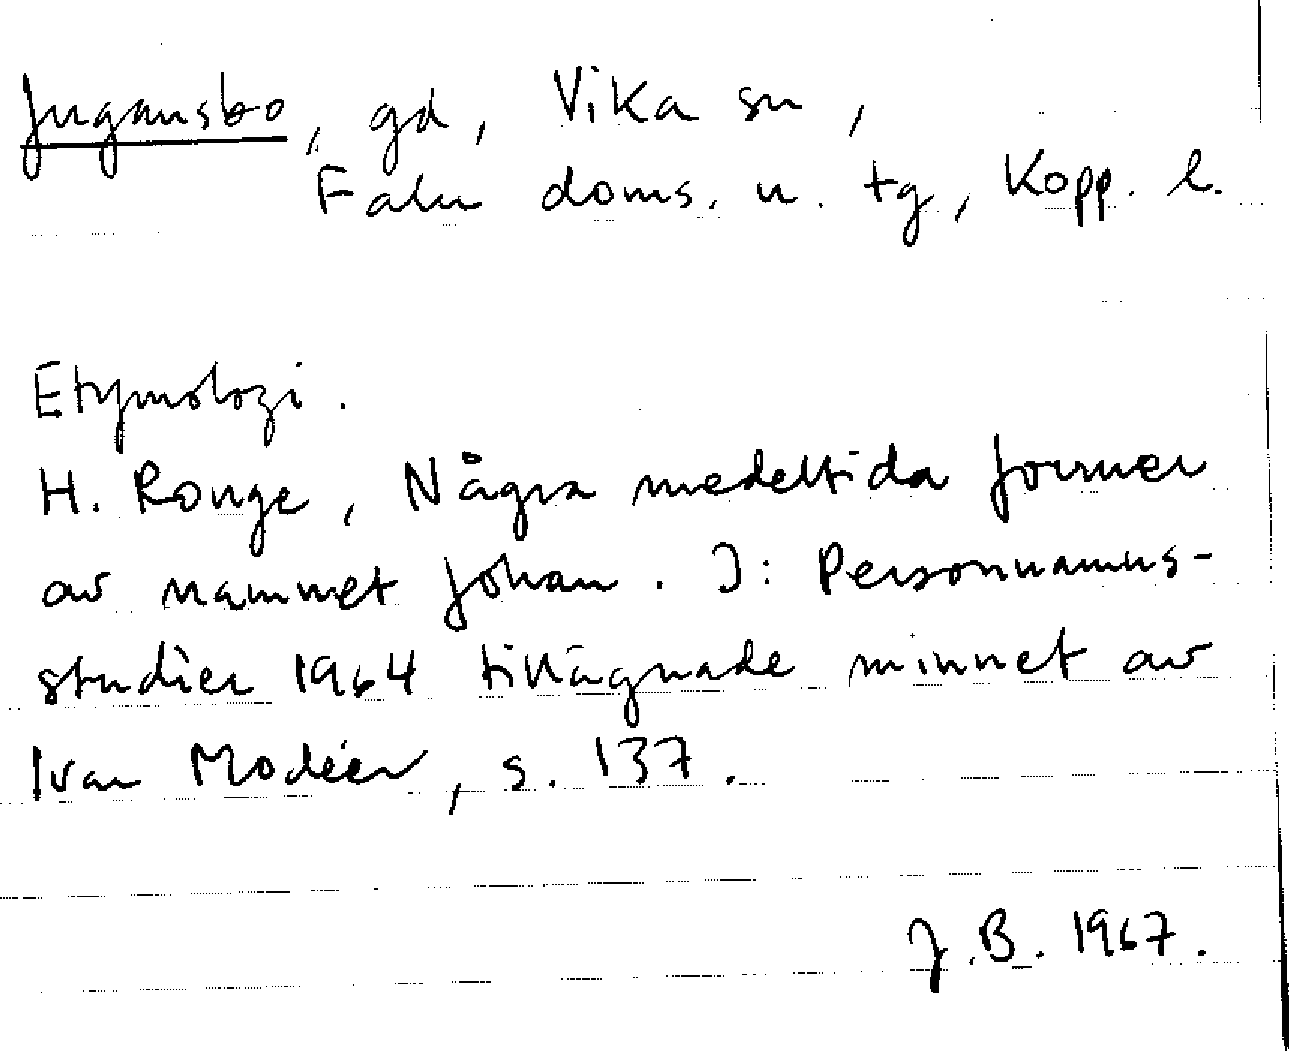 Jugansbo, gd, Vika sn,
Falu doms. n. tg, Kopp. l.
Etymologi.
H. Ronge, Några medeltida former
av namnet Johan. I: Personnamns-
studier 1964 tillägnade minnet av
Ivar Modéer, s. 137.
J.B. 1967.